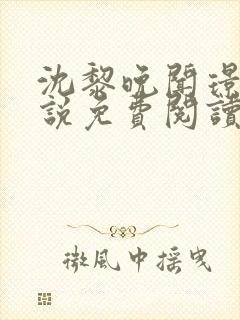 沈黎晚聞璟
說免費閱讀
微風中搖曳